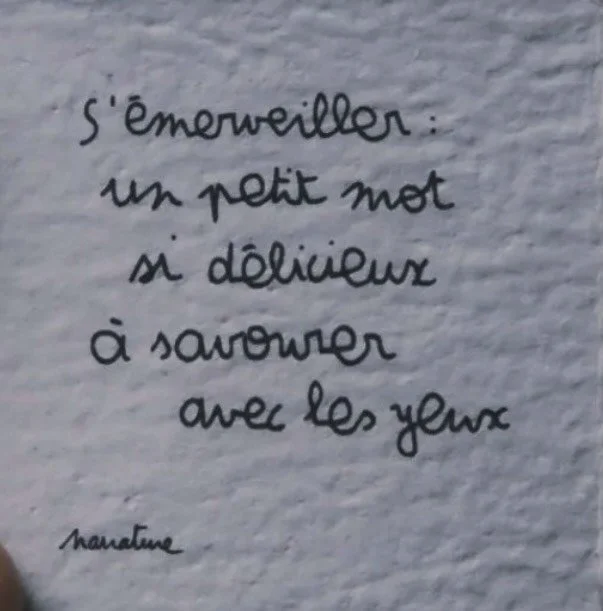 s'émerveiller :
un petit mot
si délicieux
à savourer
avec les yeux